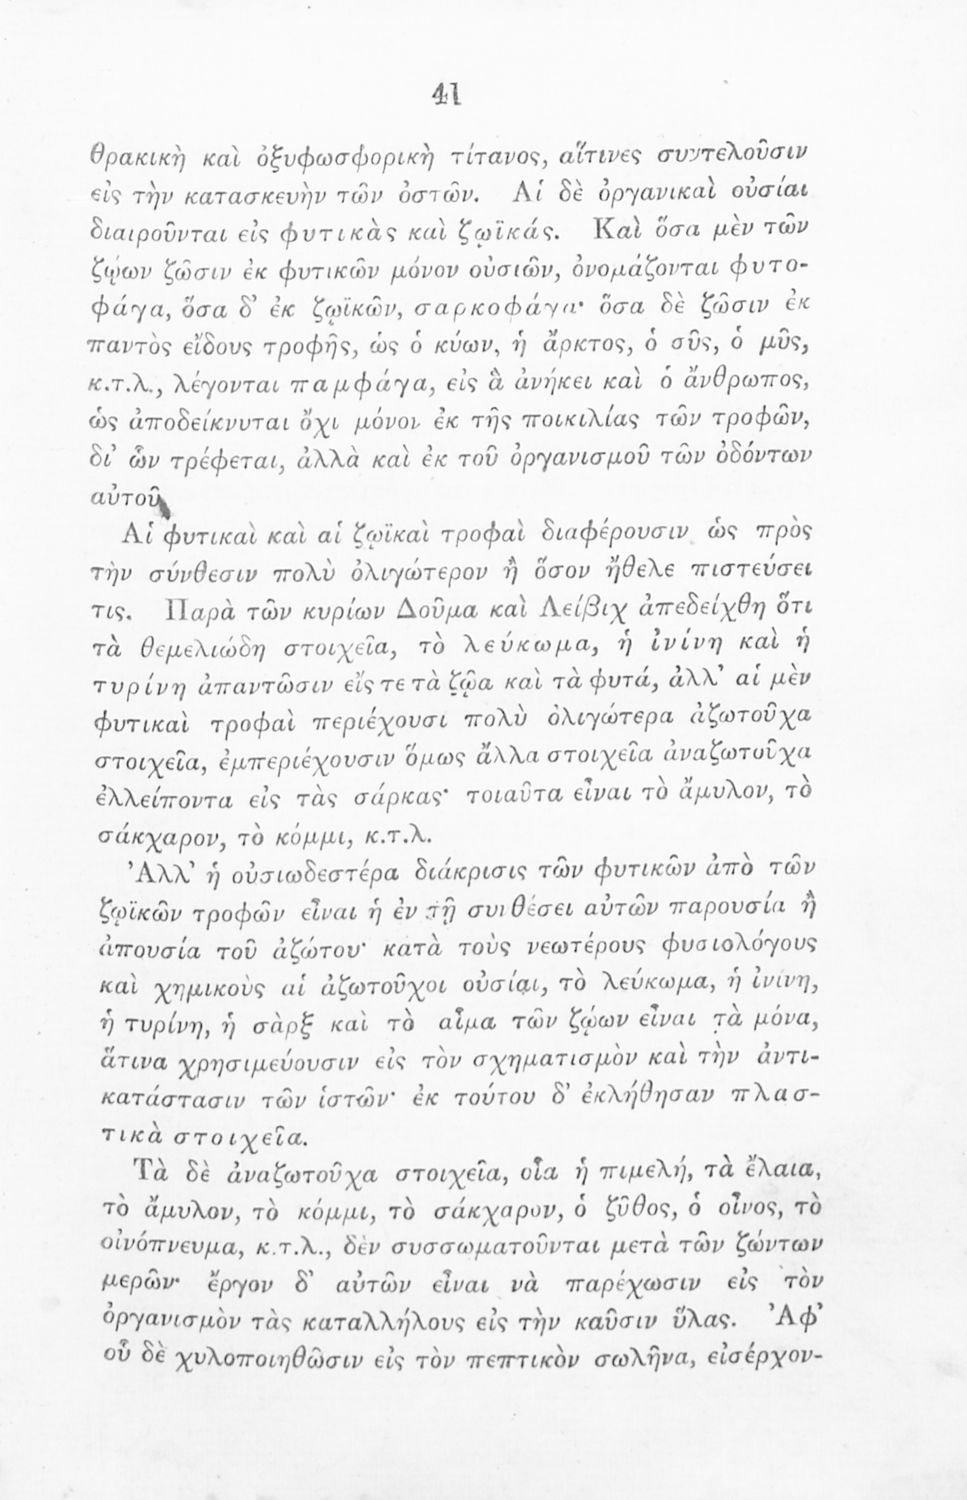 41
θρακικὴ καὶ ὀξυφωσφορικὴ τίτανος, αἵτινες συντελοῦσιν
εἰς τὴν κατασκευὴν τῶν ὀστῶν. Αἱ δὲ ὀργανικαὶ οὐσίαι
διαιροῦνται εἰς φυτικὰς καὶ ζῳϊκάς. Καὶ ὅσα μὲν τῶν
ζῴων ζῶσιν ἐκ φυτικῶν μόνον οὐσιῶν, ὀνομάζονται φυτο-
φάγα, ὅσα δ’ ἐκ ζῳϊκῶν, σαρκοφάγα· ὅσα δὲ ζῶσιν ἐκ
παντὸς εἴδους τροφῆς, ὡς ὁ κύων, ἡ ἄρκτος, ὁ σῦς, ὁ μῦς,
κ.τ.λ., λέγονται παμφάγα, εἰς ἃ ἀνήκει καὶ ὁ ἄνθρωπος,
ὡς ἀποδείκνυται ὄχι μόνον ἐκ τῆς ποικιλίας τῶν τροφῶν,
δι’ ὧν τρέφεται, ἀλλὰ καὶ ἐκ τοῦ ὀργανισμοῦ τῶν ὀδόντων
αὐτοῦ
Αἱ φυτικαὶ καὶ αἱ ζῳϊκαὶ τροφαὶ διαφέρουσιν ὡς πρὸς
τὴν σύνθεσιν πολὺ ὀλιγώτερον ἢ ὅσον ἤθελε πιστεύσει
τις. Παρὰ τῶν κυρίων Δοῦμα καὶ Λείβιχ ἀπεδείχθη ὅτι
τὰ θεμελιώδη στοιχεῖα, τὸ λεύκωμα, ἡ ἰνίνη καὶ ἡ
τυρίνη ἀπαντῶσιν εἴς τε τὰ ζῷα καὶ τὰ φυτά, ἀλλ’ αἱ μὲν
φυτικαὶ τροφαὶ περιέχουσι πολὺ ὀλιγώτερα ἀζωτοῦχα
στοιχεῖα, ἐμπεριέχουσιν ὅμως ἄλλα στοιχεῖα ἀναζωτοῦχα
ἐλλείποντα εἰς τὰς σάρκας· τοιαῦτα εἶναι τὸ ἄμυλον, τὸ
σάκχαρον, τὸ κόμμι, κ.τ.λ.
Ἀλλ’ ἡ οὐσιωδεστέρα διάκρισις τῶν φυτικῶν ἀπὸ τῶν
ζῳϊκῶν τροφῶν εἶναι ἡ ἐν τῇ συνθέσει αὐτῶν παρουσία ἢ
ἀπουσία τοῦ ἀζώτου· κατὰ τοὺς νεωτέρους φυσιολόγους
καὶ χημικοὺς αἱ ἀζωτοῦχοι οὐσίαι, τὸ λεύκωμα, ἡ ἰνίνη,
ἡ τυρίνη, ἡ σὰρξ καὶ τὸ αἷμα τῶν ζῴων εἶναι τὰ μόνα,
ἅτινα χρησιμεύουσιν εἰς τὸν σχηματισμὸν καὶ τὴν ἀντι-
κατάστασιν τῶν ἱστῶν· ἐκ τούτου δ’ ἐκλήθησαν πλασ-
τικὰ στοιχεῖα.
Τὰ δὲ ἀναζωτοῦχα στοιχεῖα, οἷα ἡ πιμελή, τὰ ἔλαια,
τὸ ἄμυλον, τὸ κόμμι, τὸ σάκχαρον, ὁ ζῦθος, ὁ οἶνος, τὸ
οἰνόπνευμα, κ.τ.λ., δὲν συσσωματοῦνται μετὰ τῶν ζώντων
μερῶν· ἔργον δ’ αὐτῶν εἶναι νὰ παρέχωσιν εἰς τὸν
ὀργανισμὸν τὰς καταλλήλους εἰς τὴν καῦσιν ὕλας. Ἀφ’
οὗ δὲ χυλοποιηθῶσιν εἰς τὸν πεπτικὸν σωλῆνα, εἰσέρχον-